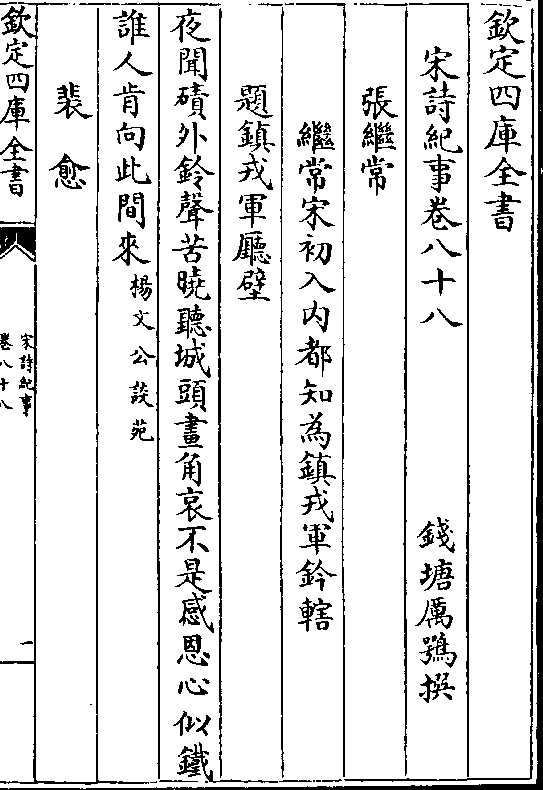 欽定四庫全書
宋詩紀事卷八十八
錢塘厲鶚撰
張繼常
繼常宋初入内都知為鎮戎軍鈐轄
題鎮戎軍廳壁
夜聞磧外鈴聲苦曉聽城頭畫角哀不是感恩心似鐵
誰人肯向此間來楊文公談苑
裴愈
欽定四庫全書
宋詩紀事
卷八十八
一